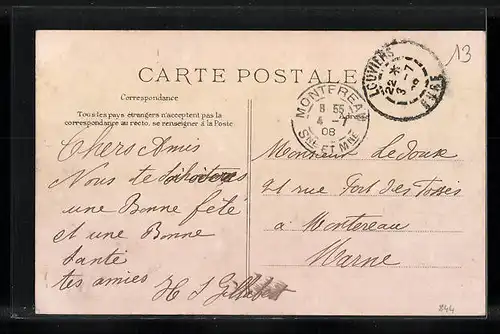 13
CARTE POSTALE
LOUVIERS
22 *
3 - 7
EURE
MONTEREAU
8 55
4 - 7
08
SNE ET MNE
Correspondance
Tous les pays étrangers n'acceptent pas la
correspondance au recto, se renseigner à la Poste
Chers Amis
Nous te
une Bonne fété
et une Bonne
Santé
tes amies H
Monsieur Ledoux
rue Fort des Fossés
à Montereau
Marne
244